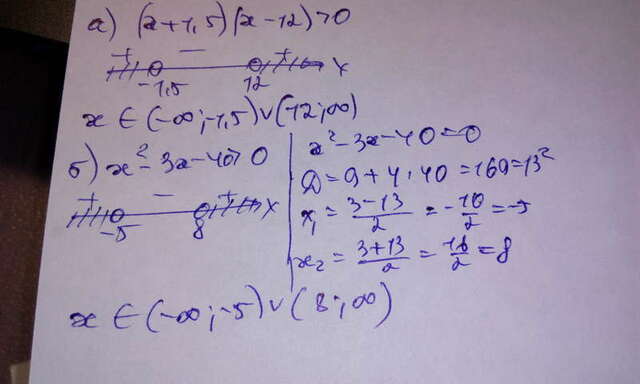 а) (x+1,5)(x-12)>0
+ − +
-1,5 12 x
x ∈ (-∞;-1,5)∪(12;∞)
б) x²-3x-40>0
+ − +
-5 8 x
x²-3x-40=0
D=9+4·40=169=13²
x₁=(3-13)/2=-10/2=-5
x₂=(3+13)/2=16/2=8
x ∈ (-∞;-5)∪(8;∞)